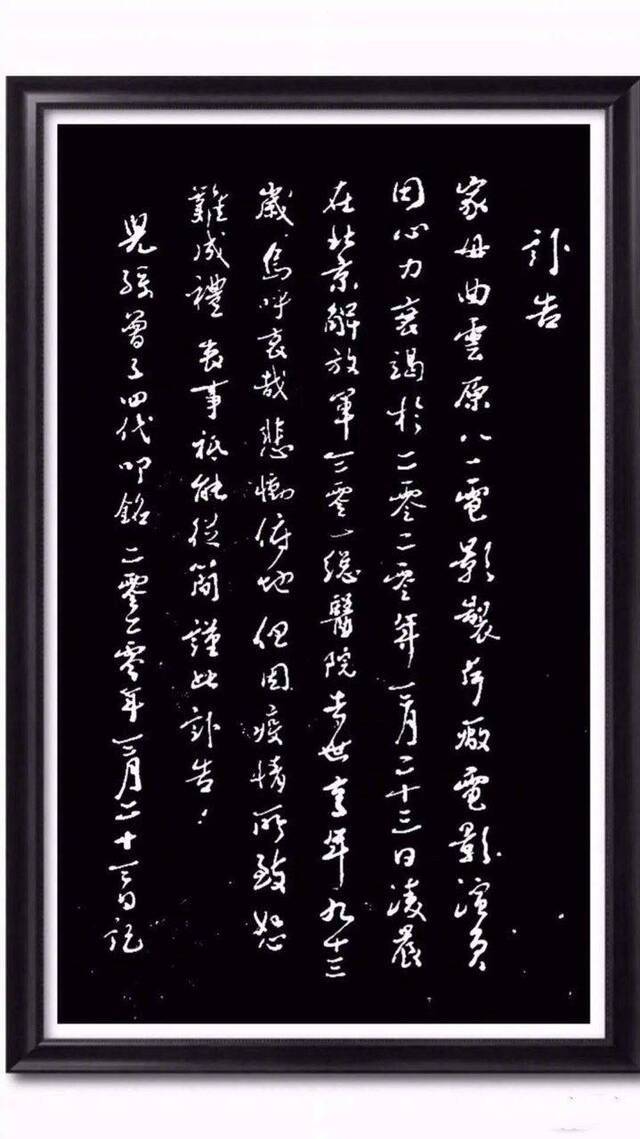 訃告
家母曲雲原八一電影製片廠電影演員
因心力衰竭於二零二零年三月二十三日凌晨
在北京解放軍三零一總醫院去世享年九十三
歲嗚呼哀哉悲慟俯地但因疫情所致恕
難成禮喪事祗能從簡謹此訃告！
兒孫曾子四代叩銘二零二零年三月二十三日訖